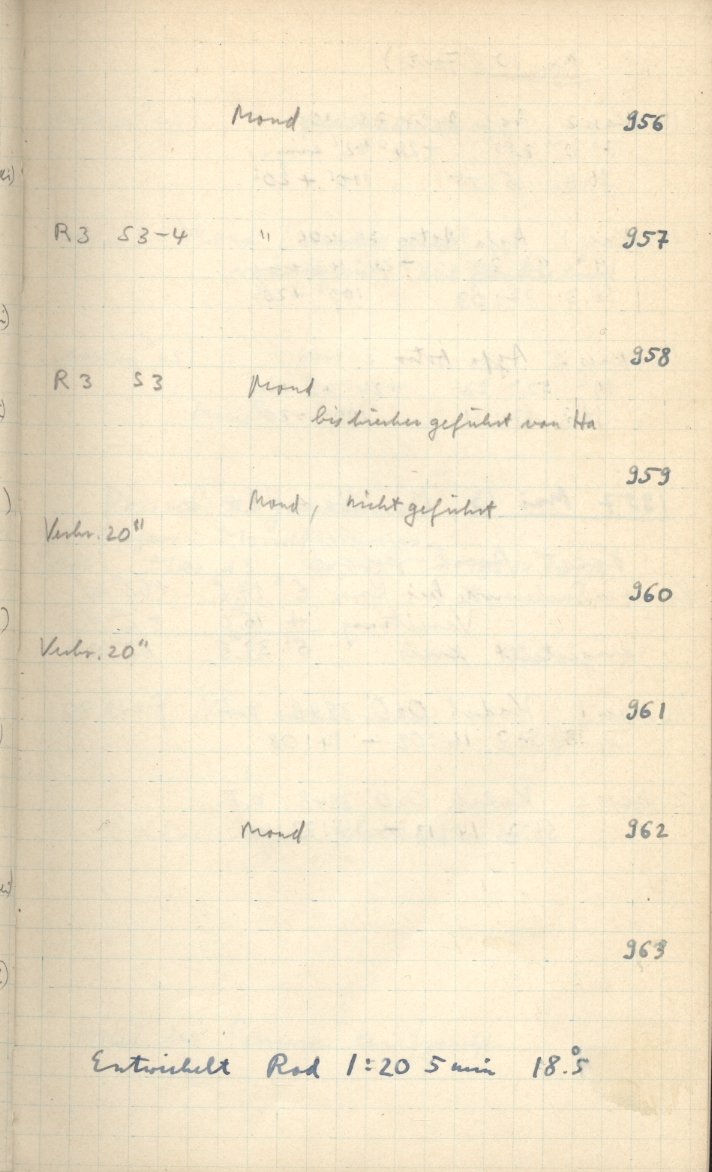 Mond 956
R3 S3-4 " 957
958
R3 S3 Mond
bis hierher geführt von Ha
959
Mond, nicht geführt
Verbr. 20"
960
Verbr. 20"
961
Mond 962
963
Entwickelt Rod 1:20 5 min 18.°5